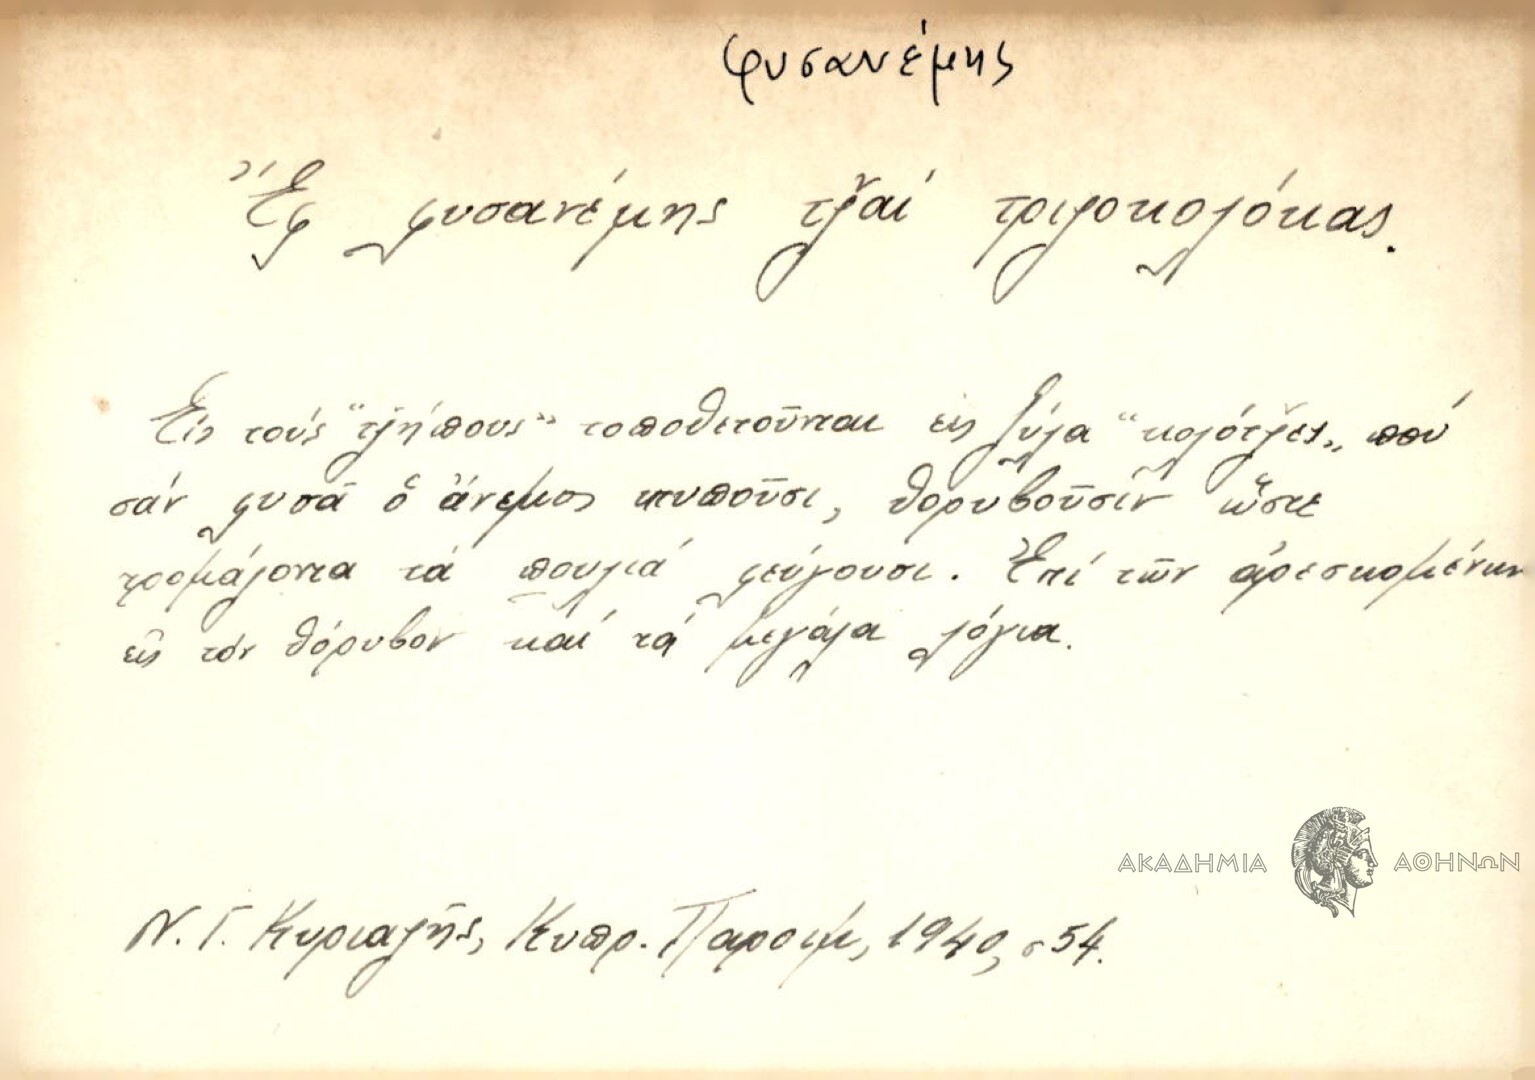 φυσανέμης
Ἔφ φυσανέμης τζ̌αί τριζοκολόκας.
Εἰς τούς "τζ̌ήπους" τοποθετοῦνται εἰς ξύλα "κολότζ̌ες" πού
σάν φυσᾶ ὁ ἄνεμος κτυποῦσι, θορυβοῦσιν ὥστε
τρομάζοντα τά πουλιά φεύγουσι. Ἐπί τῶν ἀρεσκομένων
εἰς τόν θόρυβον καί τά μεγάλα λόγια.
ΑΚΑΔΗΜΙΑ ΑΘΗΝΩΝ
Ν. Γ. Κυριαζῆς, Κυπρ. Παροιμ, 1940, σ 54.